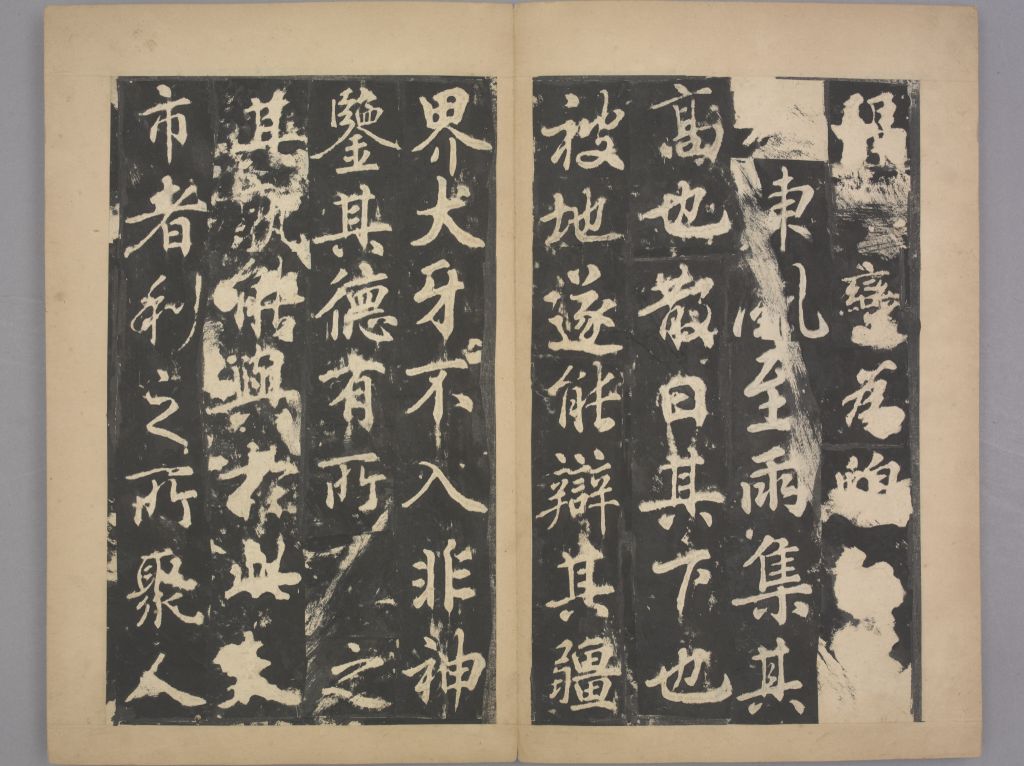 為
東風至雨集其
高也散日其下也
被地遂能辯其疆
界犬牙不入非神
鑒其德有所之
其孰能與於此夫
市者利之所聚人